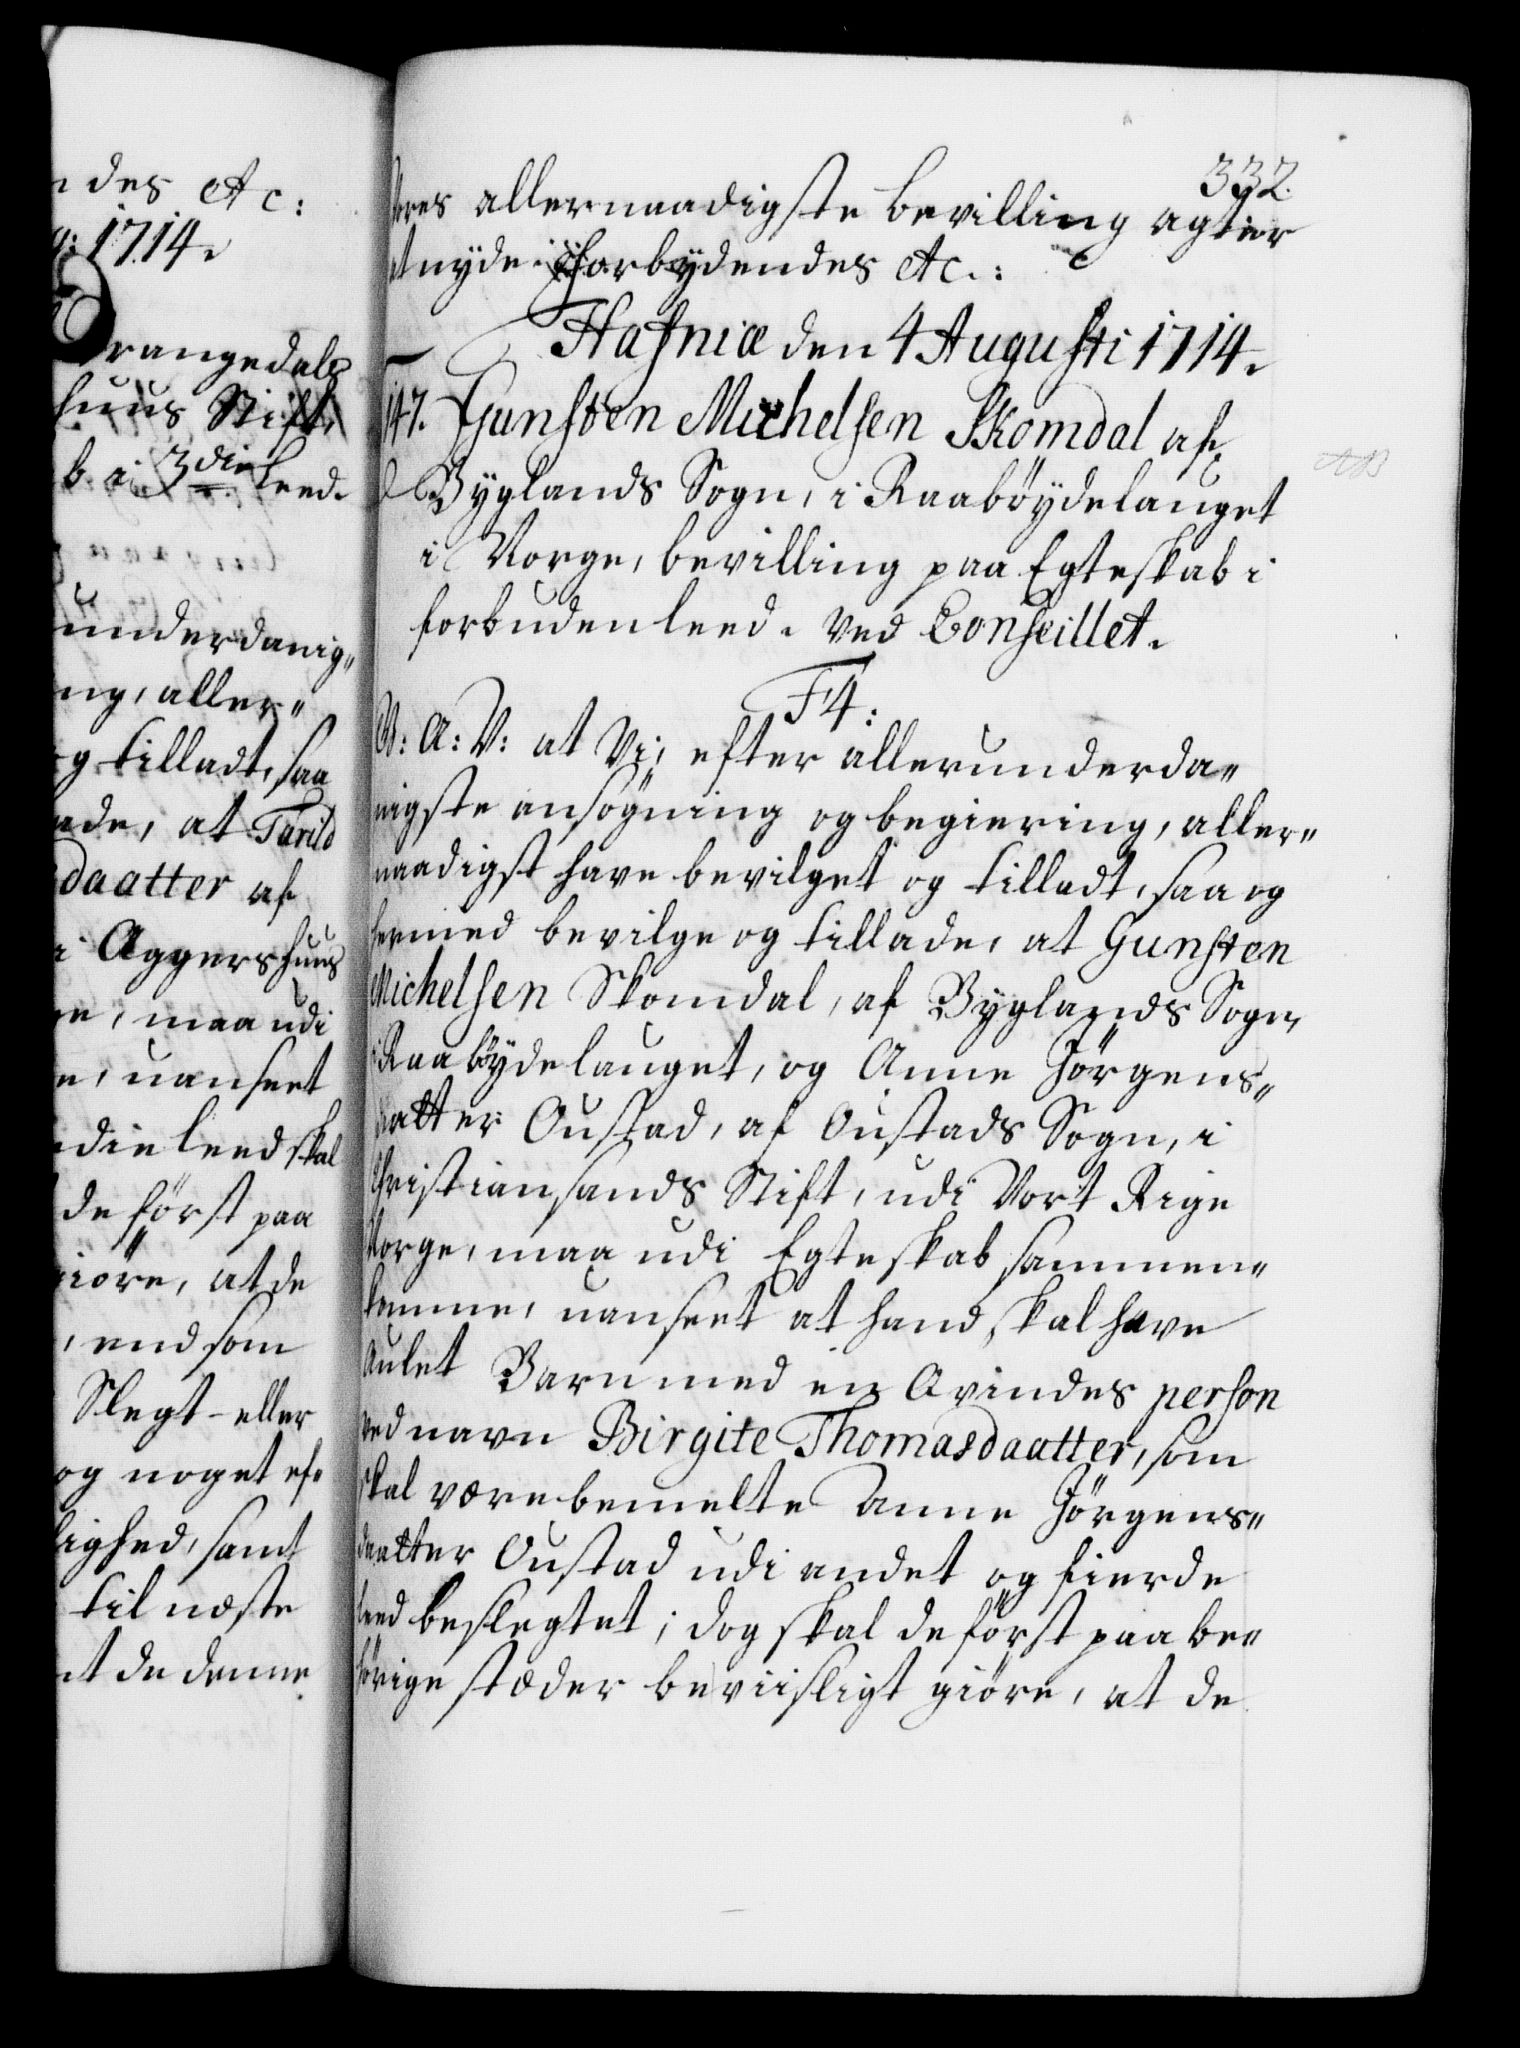 n des etc:
g: 1714.
rangedals
huus Stift,
b i 3die leed.
underdanig„
ng, aller„
g tilladt, saa
ade, at Tarild
daatter af
i Aggershuus
ge, maa udi
e, uanseet
die leed skal
de først paa
giøre, at de
, end som
Slegt- eller
og noget ef„
lighed, samt
til næste
at de denne
332.
Vores allernaadigste bevilling agter
at nyde. Forbydendes etc.:
Hafniæ den 4 Augusti 1714.
147. Gunsten Michelsen Skomdal af
Byglands Sogn, i Raabøydelauget
i Norge, bevilling paa Egteskab i
forbuden leed. ved Conseillet.
F4:
G: A: V: at Vi, efter allerunderda„
nigste ansøgning og begiering, aller„
naadigst have bevilget og tilladt, saa og
hermed bevilge og tillade, at Gunsten
Michelsen Skomdal, af Byglands Sogn,
i Raabøydelauget, og Anne Jørgens„
datter Oustad, af Oustads Sogn, i
Christiansands Stift, udi Vort Rige
Norge, maa udi Egteskab sammen„
komme, uanseet at hand skal have
aulet Barn med en Qvindes person
ved navn Birgite Thomasdaatter, som
skal være bemelte Anne Jørgens„
daatter Oustad udi andet og fierde
leed beslegtet; dog skal de først paa be„
hørige stæder beviisligt giøre, at de